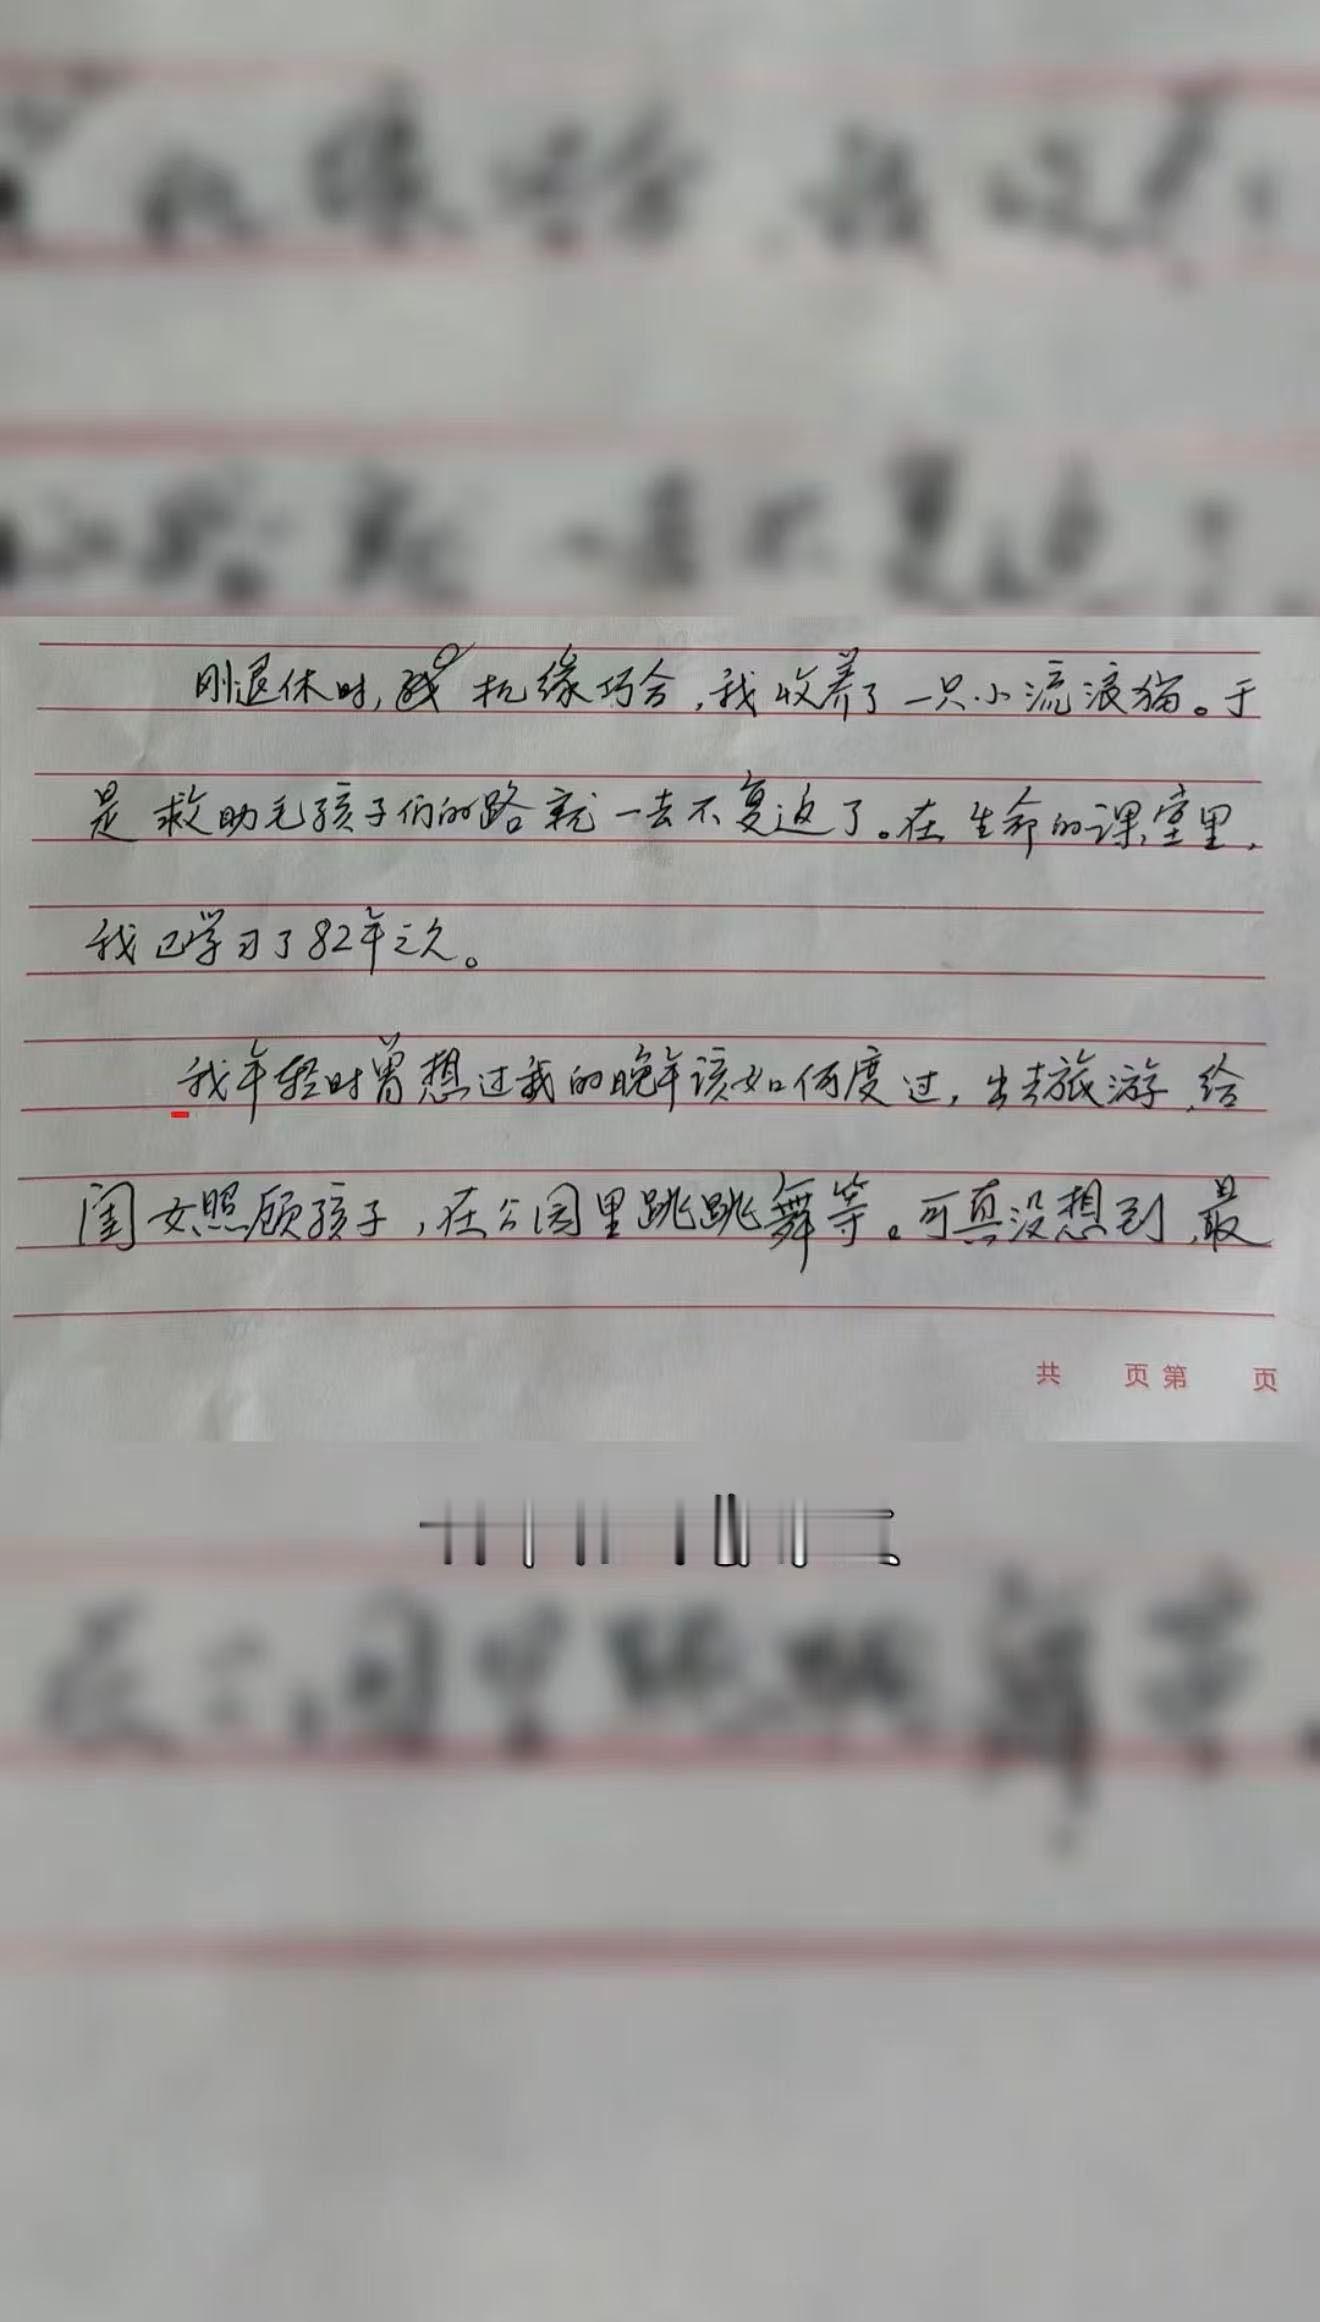 刚退休时，机缘巧合，我收养了一只小流浪猫。于
是救助毛孩子们的路就一去不复返了。在生命的课堂里，
我已学习了82年之久。
我年轻时曾想过我的晚年该如何度过，出去旅游，给
闺女照顾孩子，在公园里跳跳舞等。可真没想到，最
共 页 第 页